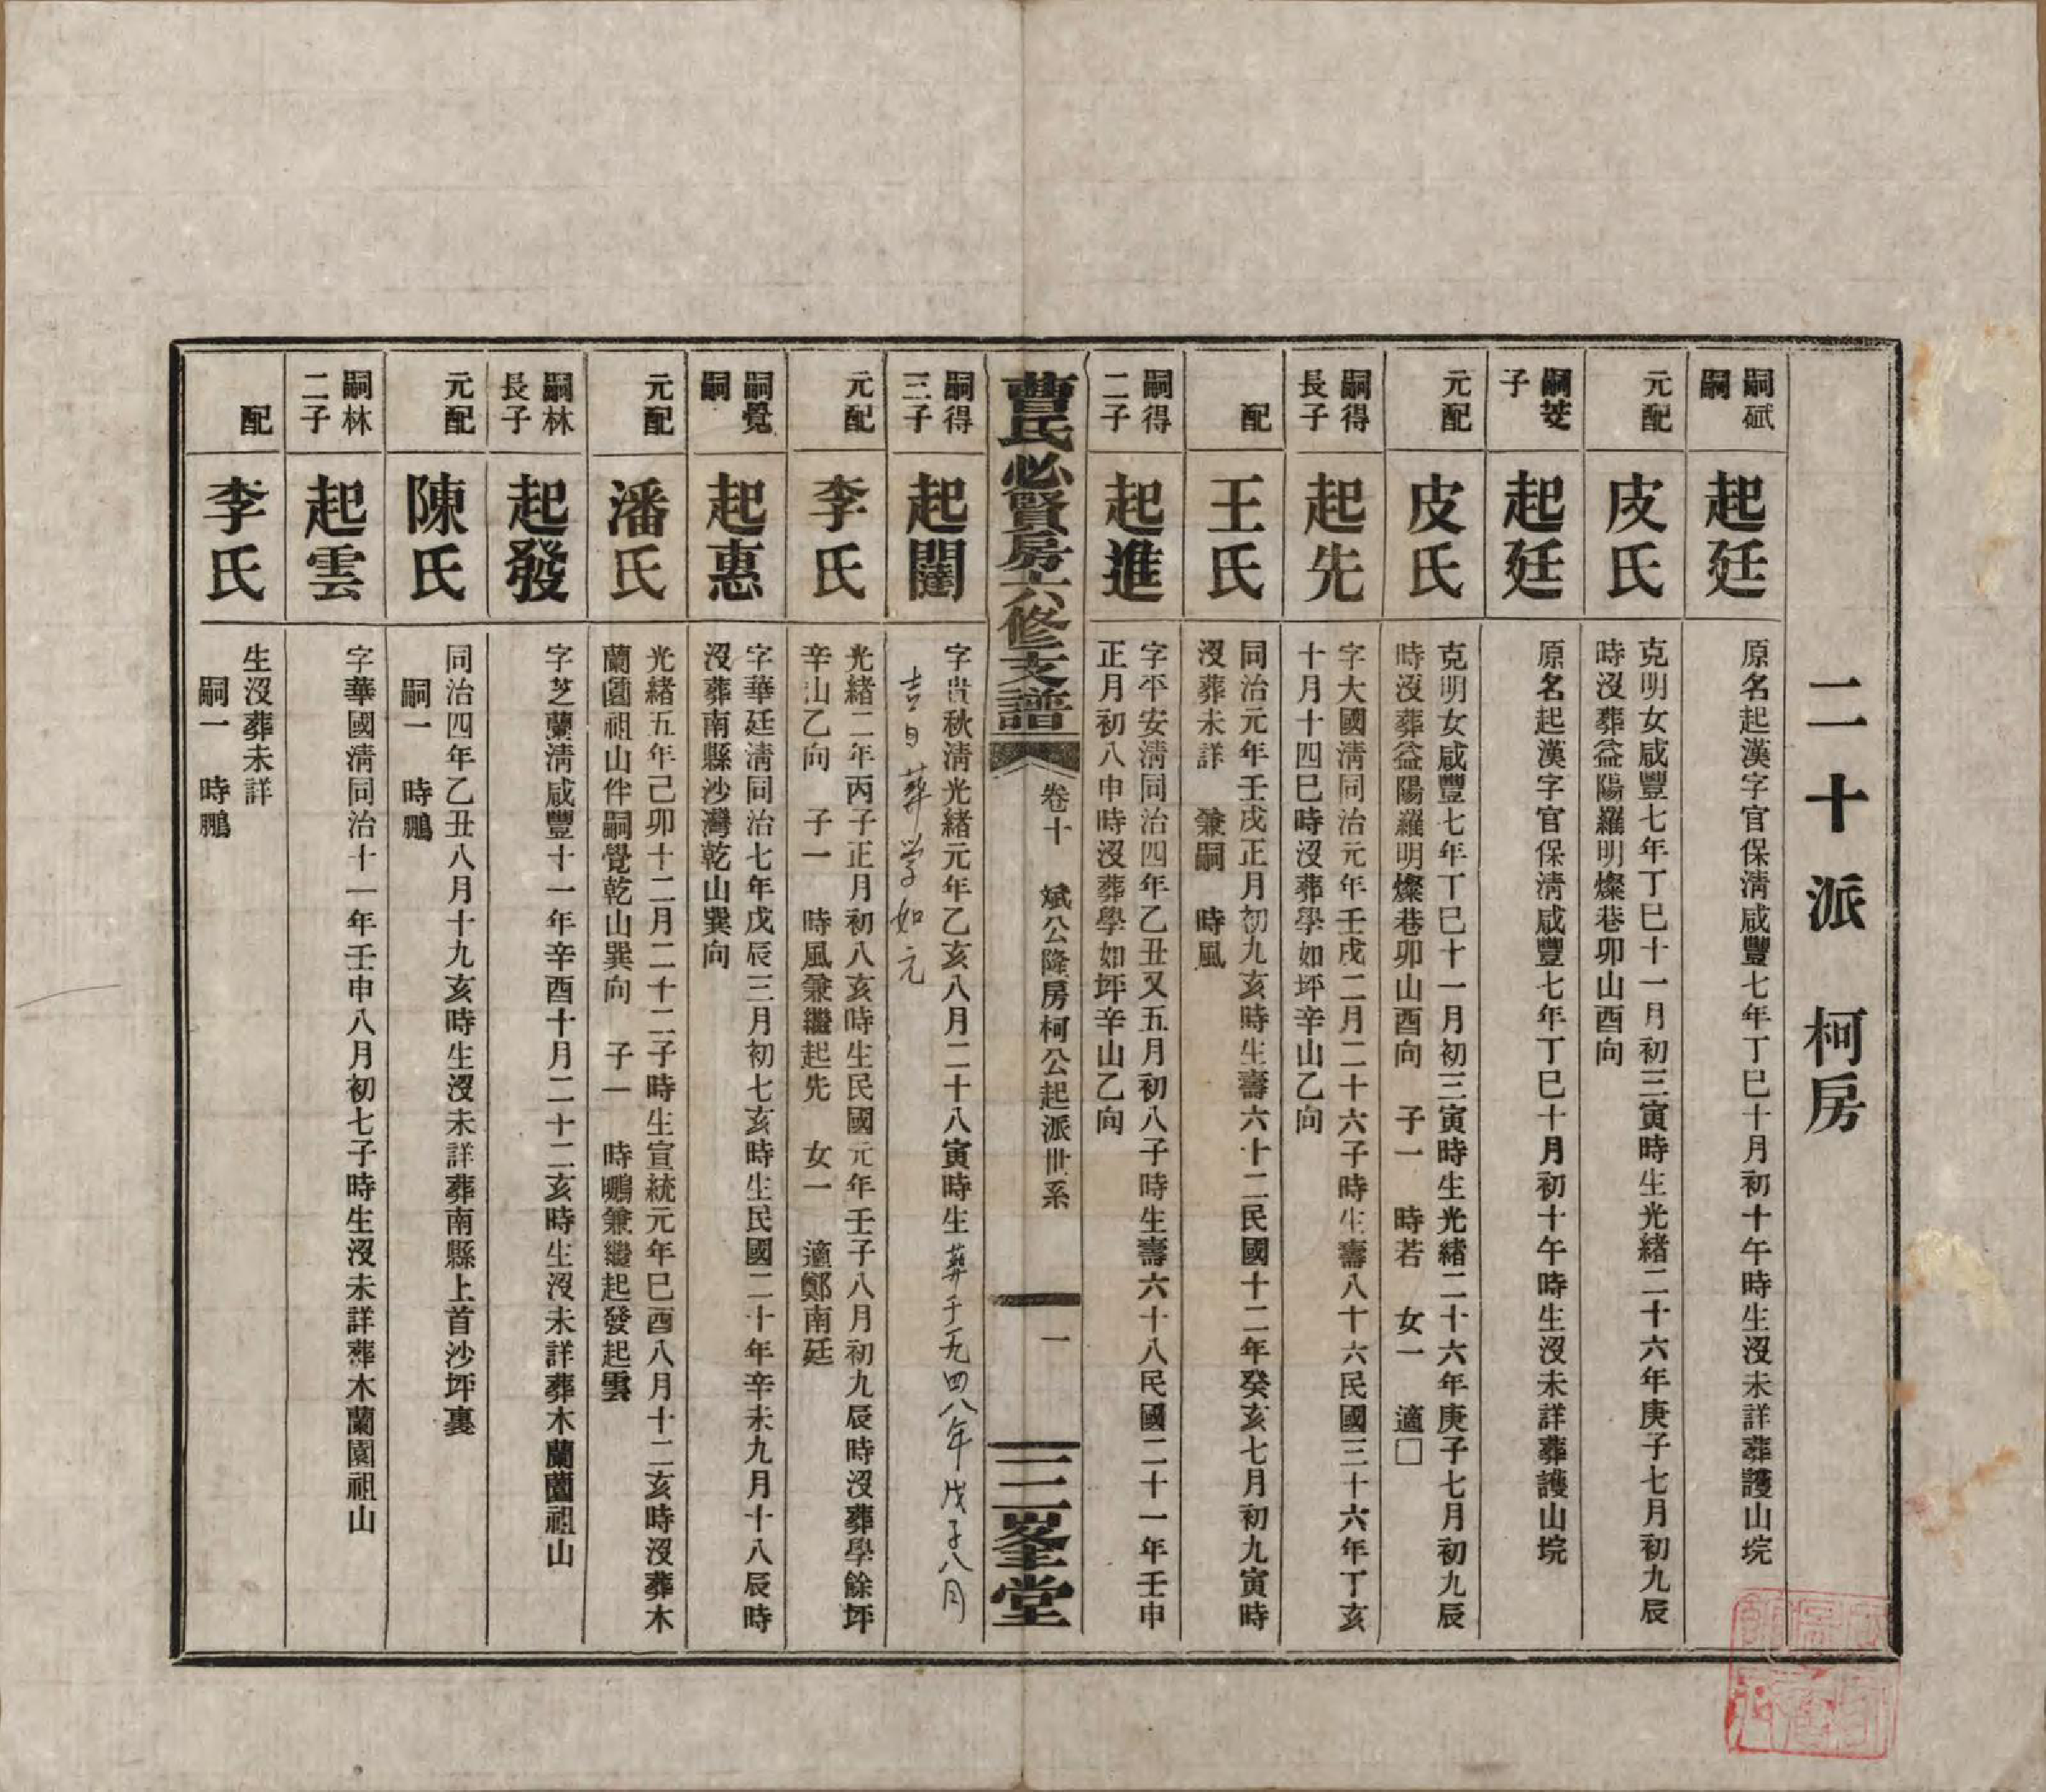 二十派　柯房
嗣斌
嗣
起廷
原名起漢字官保淸咸豐七年丁巳十月初十午時生沒未詳葬護山垸
元配
皮氏
克明女咸豐七年丁巳十一月初三寅時生光緒二十六年庚子七月初九辰
時沒葬益陽羅明燦巷卯山酉向
嗣芰
子
起廷
原名起漢字官保淸咸豐七年丁巳十月初十午時生沒未詳葬護山垸
元配
皮氏
克明女咸豐七年丁巳十一月初三寅時生光緒二十六年庚子七月初九辰
時沒葬益陽羅明燦巷卯山酉向　子一　時若　女一　適□
嗣得
長子
起先
字大國淸同治元年壬戌二月二十六子時生壽八十六民國三十六年丁亥
十月十四巳時沒葬學如坪辛山乙向
配
王氏
同治元年壬戌正月初九亥時生壽六十二民國十二年癸亥七月初九寅時
沒葬未詳　兼嗣　時風
嗣得
二子
起進
字平安淸同治四年乙丑又五月初八子時生壽六十八民國二十一年壬申
正月初八申時沒葬學如坪辛山乙向
曹氏必賢房六修支譜
卷十　斌公隆房柯公起派世系
一
三峯堂
嗣得
三子
起闓
字貴秋淸光緒元年乙亥八月二十八寅時生葬于一九四八年戊子八月
吉日葬学如元
元配
李氏
光緒二年丙子正月初八亥時生民國元年壬子八月初九辰時沒葬學餘坪
辛山乙向　子一　時風兼繼起先　女一　適鄭南廷
嗣覺
嗣
起惠
字華廷淸同治七年戊辰三月初七亥時生民國二十年辛未九月十八辰時
沒葬南縣沙灣乾山巽向
元配
潘氏
光緒五年己卯十二月二十二子時生宣統元年巳酉八月十二亥時沒葬木
蘭園祖山伴嗣覺乾山巽向　子一　時鵬兼繼起發起雲
嗣林
長子
起發
字芝蘭淸咸豐十一年辛酉十月二十二亥時生沒未詳葬木蘭園祖山
元配
陳氏
同治四年乙丑八月十九亥時生沒未詳葬南縣上首沙坪裏
嗣一　時鵬
嗣林
二子
起雲
字華國淸同治十一年壬申八月初七子時生沒未詳葬木蘭園祖山
配
李氏
生沒葬未詳
嗣一　時鵬